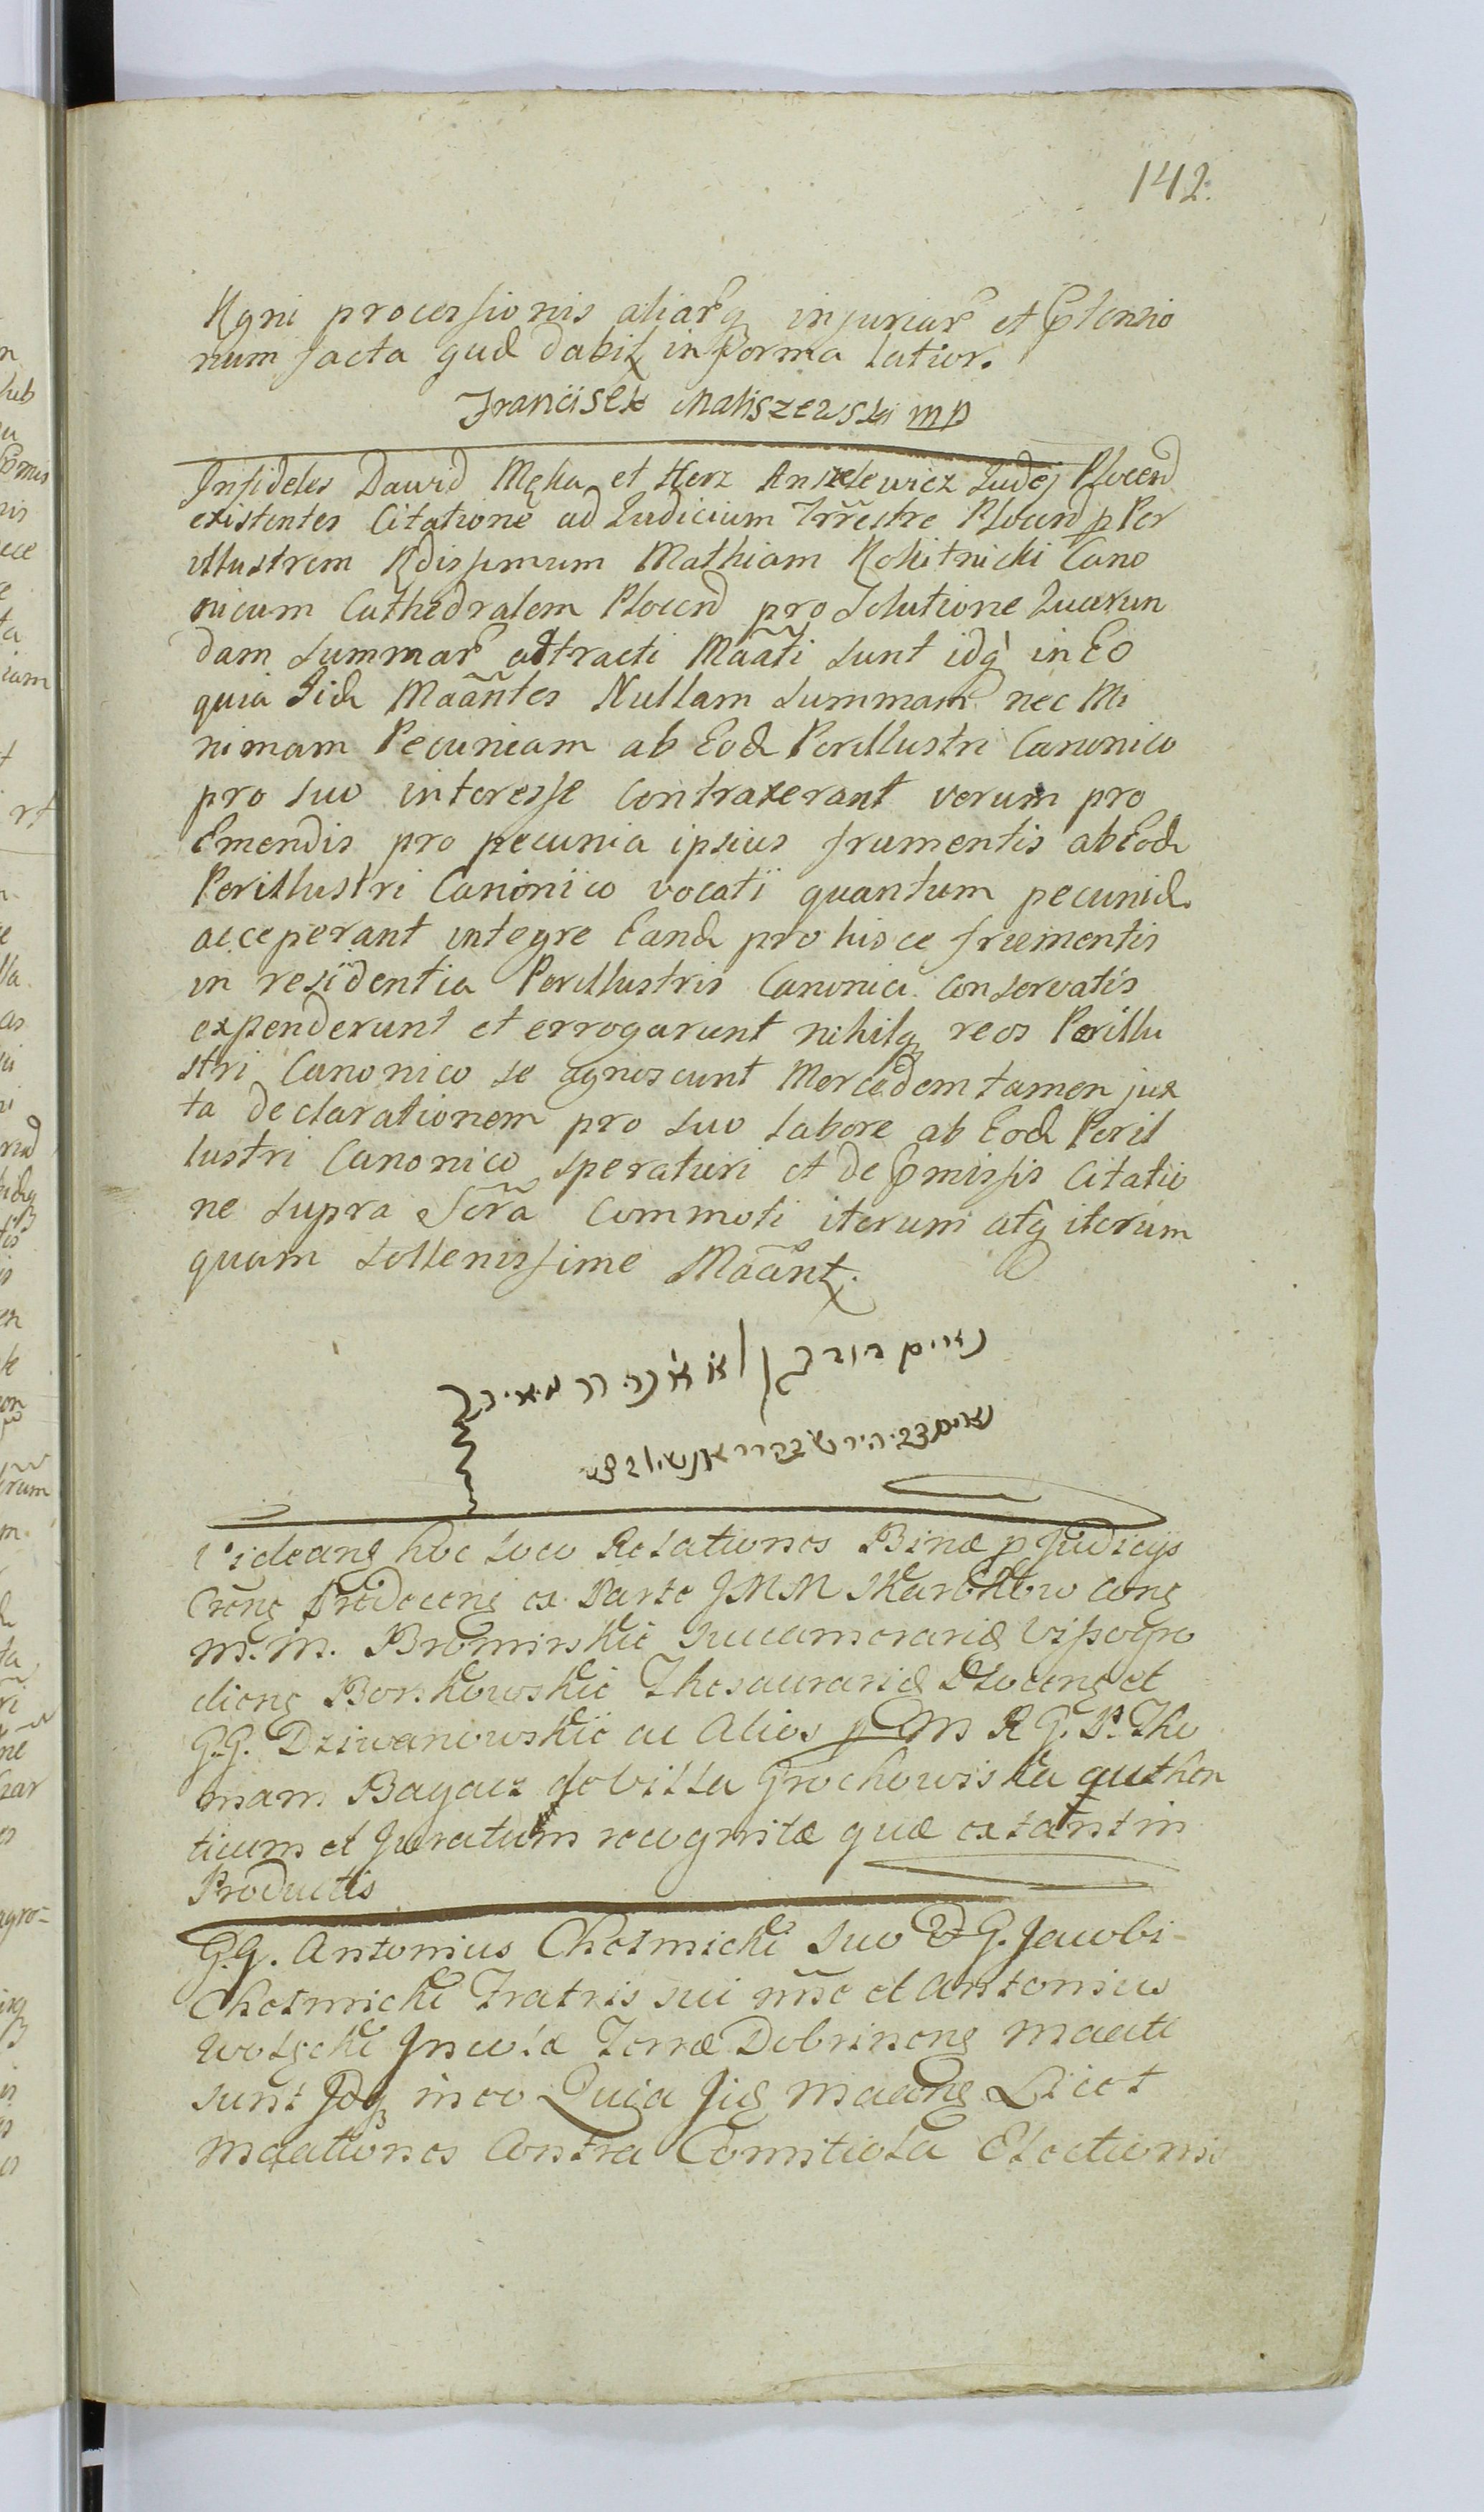 142.
Rgni processionis aliarq injuriar et Extensio
num facta quæ dabit in forma latior.
Franciisek Maliszewski mp
Infideles Dawid Męka et Herz Anszelewicz Judęj Plocen
existentes Citatione ad Judicium Trrestre Plocen p Per
illustrem Rdissimum Mathiam Rokitnicki Cano
nicum Cathedralem Plocen pro Solutione Quarun
dam Summar attracti Maãti sunt idq in Eo
quia Iid Maãntes Nullam Summam nec Mi
nimam Pecuniam ab Eod Perillustri Canonico
pro suo interesse Contraxerant verum pro
Emendis pro pecunia ipsius frumentis ab Eod
Perillustri Canoniico vocati quantum pecuniæ
acceperant integre Eand pro hisce frumentis
in residentia Perillustris Canonici conservatis
expenderunt et errogarunt nihilq reos Perillu
stri Canonico se agnoscunt Mercedem tamen jux
ta declarationem pro suo Labore ab Eod Peril
lustri Canonico speraturi et de Præmissis Citatio
ne supra Scrã Commoti iterum atq iterum
quam Sollenissime Maãnt.
נאום דוד
נאום צבי הירש
Videang hoc loco Relationes Binæ p Judicijs
ex Parte
M. M. Bromirskie Succamerarid Vissogro
dieng Borkowskie Thesaurarid Ploceng et
G.G. Dziwanowskie ac Alios p M R G. P. Tho
mam Bagacz de villa Grochowiska authen
ticum et Juratum recognitæ quæ extant in
Productis
G.G. Antonius Chełmicki Suo et G. Jacobi
Chełmicki Fratris sui nñe et Antonius
Wolęcki Incolæ Terræ Dobrineng Maati
sunt Idq in eo Quia Iid Maang Licet
Maationes Contra Comitiola Electionis